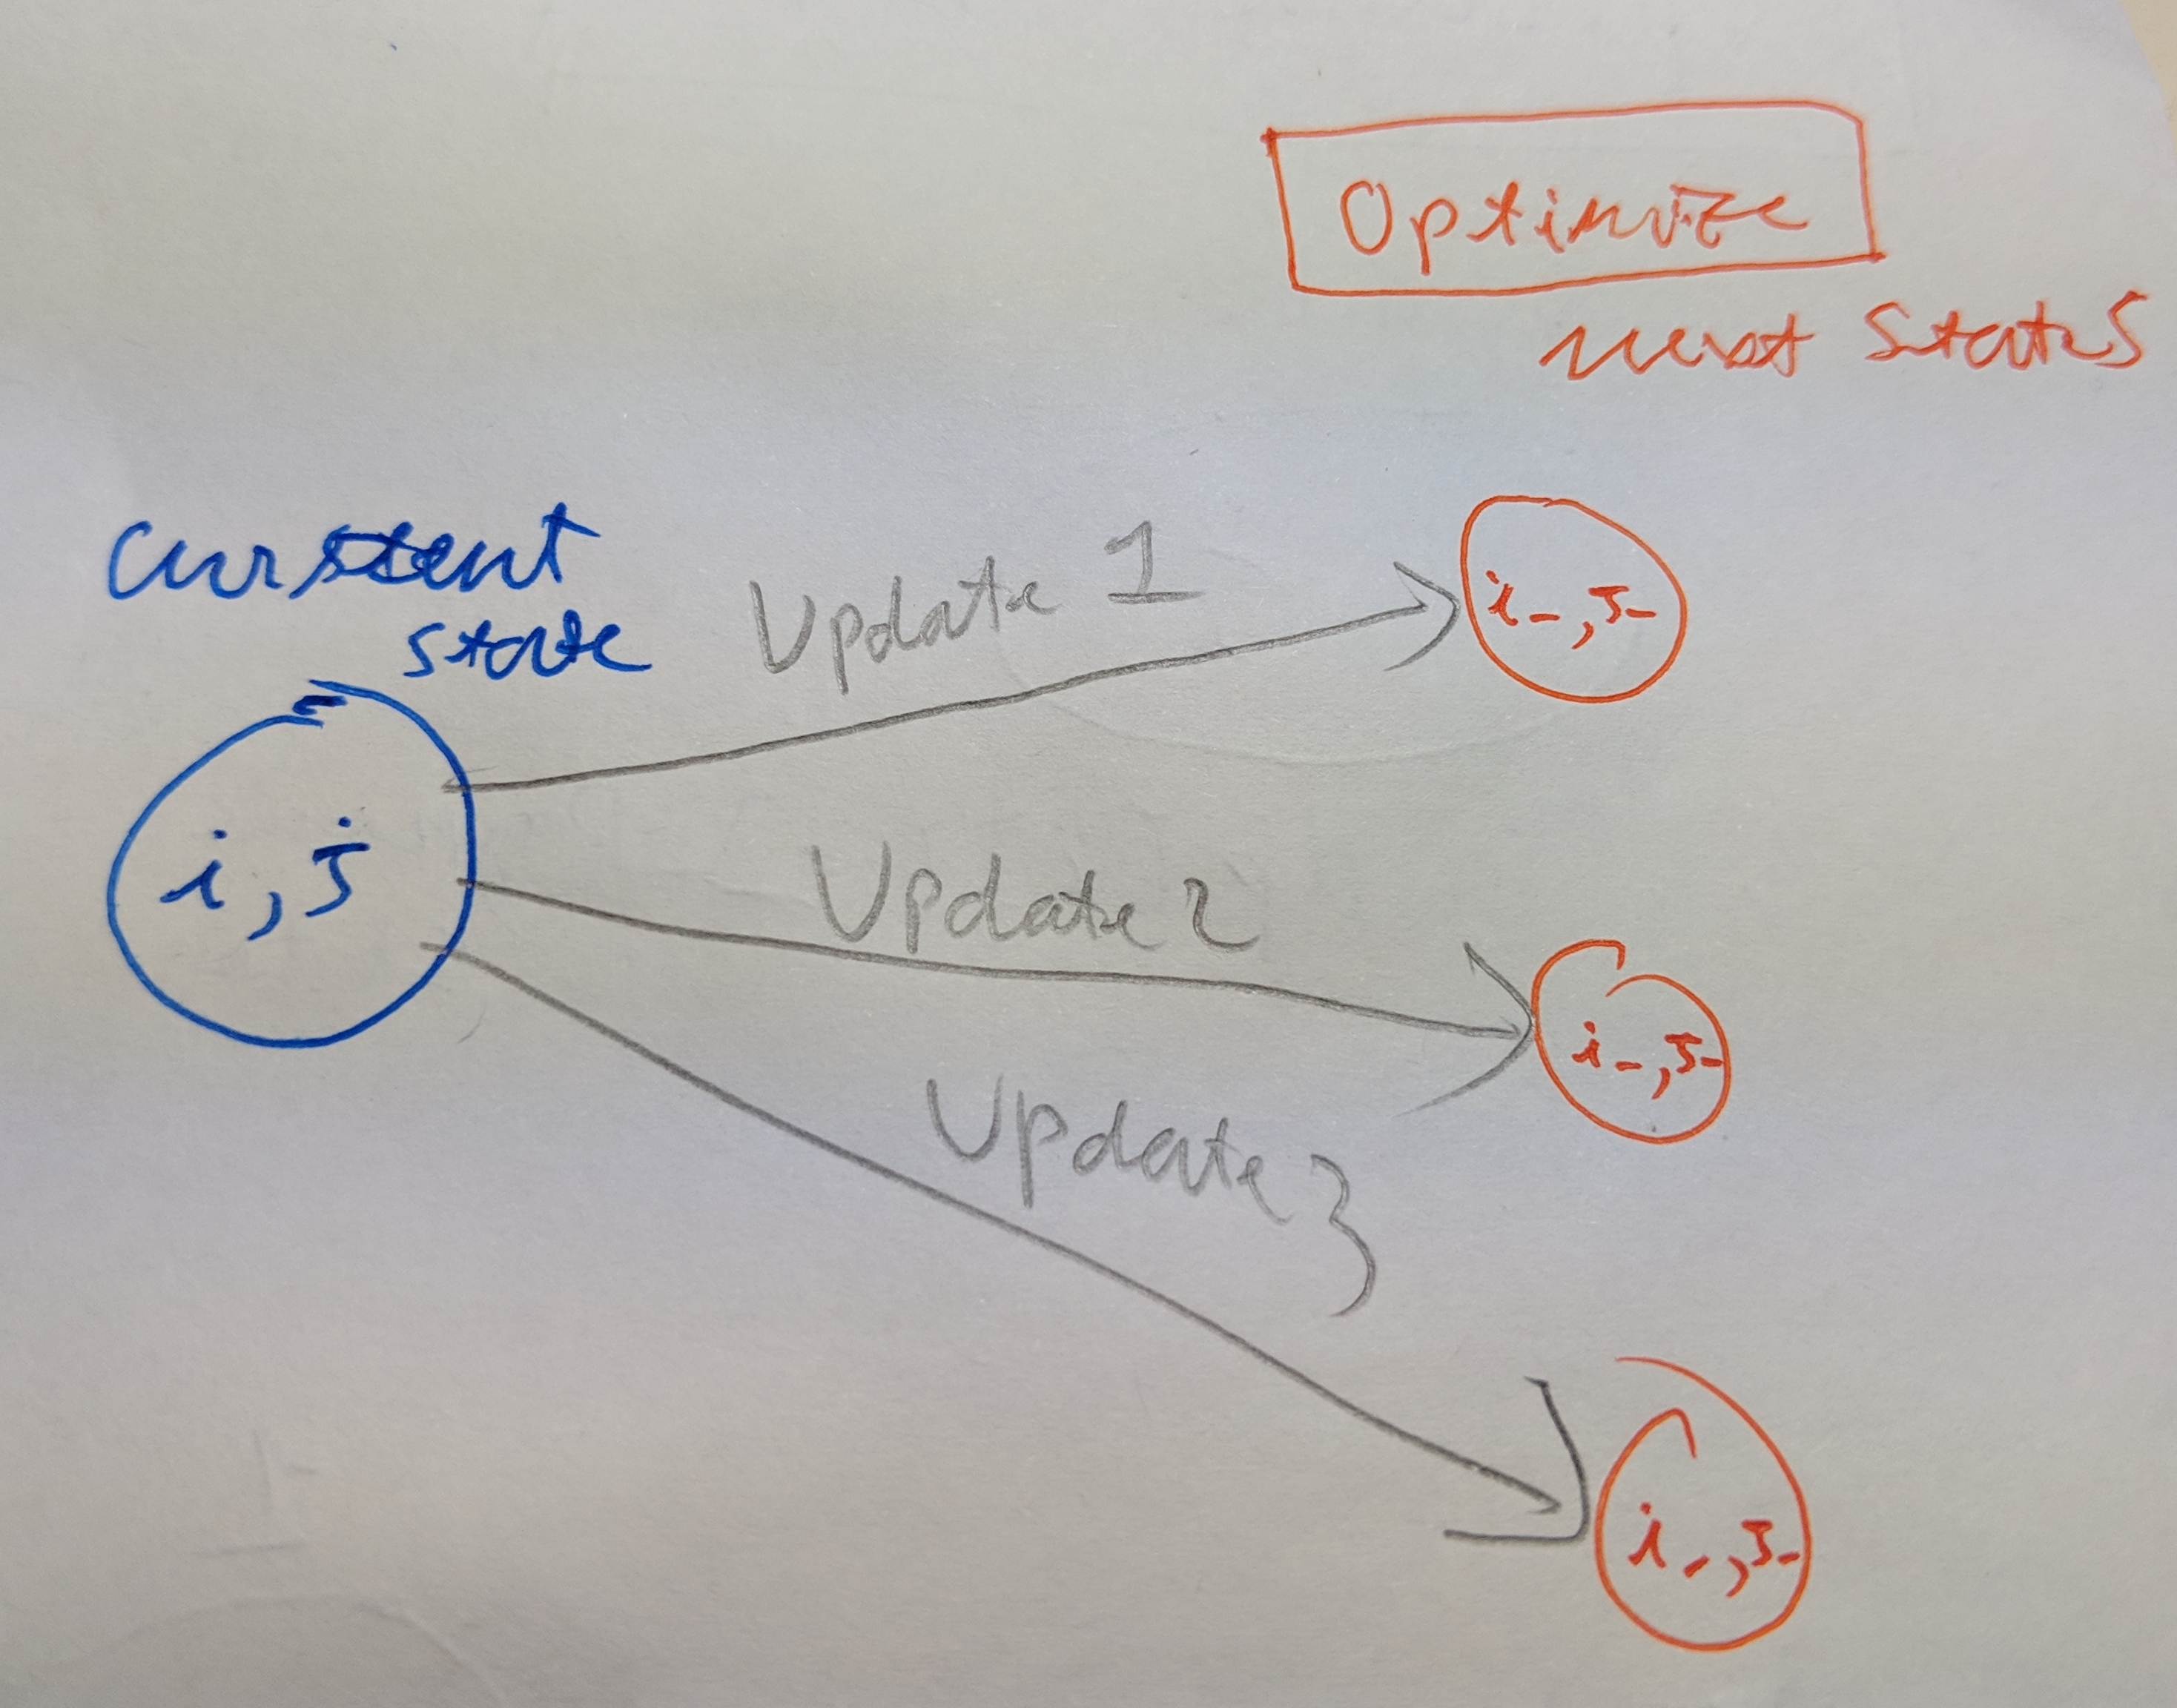 Optimize
next states
current
state
Update 1
i_,j_
i,j
Update 2
i_,j_
Update 3
i_,j_